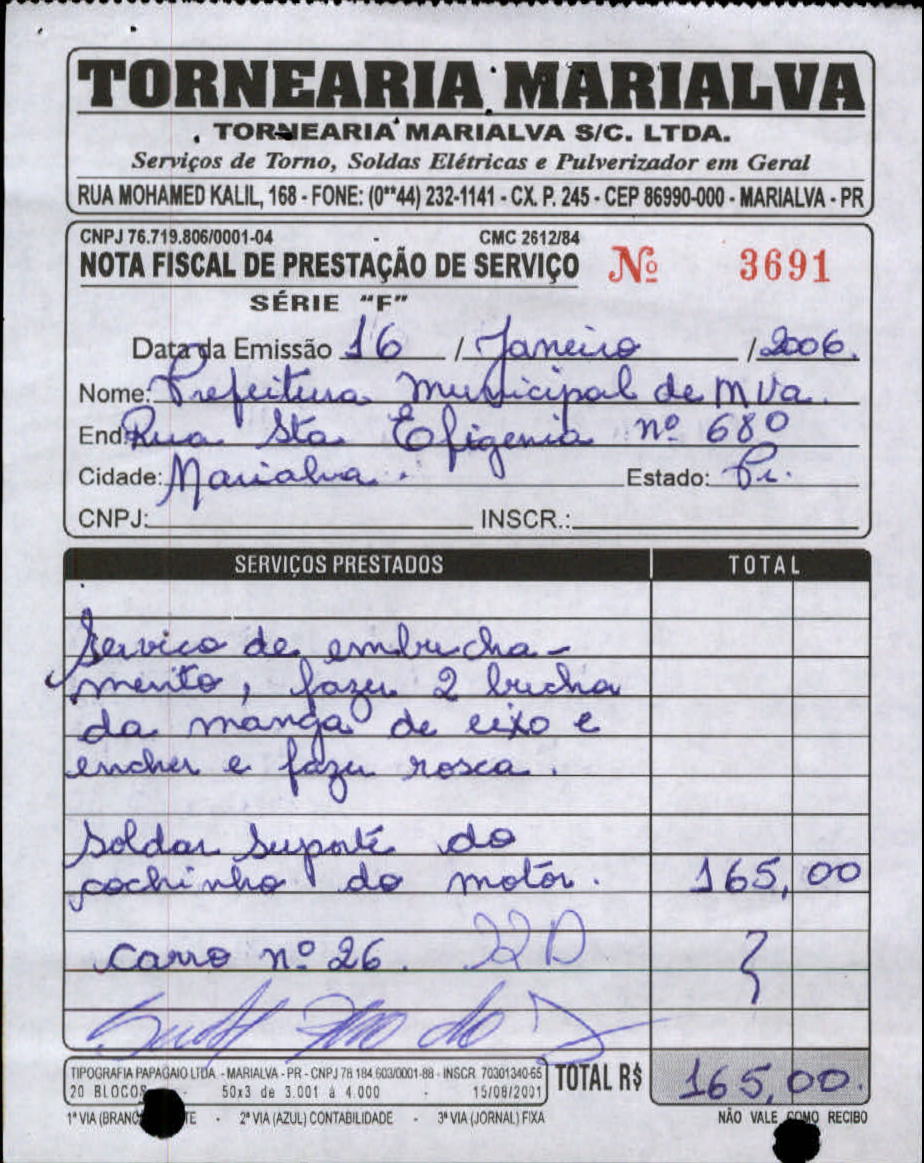 TORNEARIA MARIALVA
TORNEARIA MARIALVA S/C. LTDA.
Serviços de Torno, Soldas Elétricas e Pulverizador em Geral
RUA MOHAMED KALIL, 168 - FONE: (0**44) 232-1141 - CX. P. 245 - CEP 86990-000 - MARIALVA - PR
CNPJ 76.719.806/0001-04 CMC 2612/84
NOTA FISCAL DE PRESTAÇÃO DE SERVIÇO Nº 3691
SÉRIE "F"
Data da Emissão 16 / Janeiro / 2006.
Nome: Prefeitura Municipal de Mva.
End: Rua Sta Efigenia nº 680
Cidade: Marialva. Estado: Pr.
CNPJ: INSCR.:
SERVIÇOS PRESTADOS TOTAL
Servico de embucha-
mento, fazer 2 bucha
da manga de eixo e
encher e fazer rosca.
Soldar Suporte do
cochinho do motor. 165,00
carro nº 26. 22D
TIPOGRAFIA PAPAGAIO LTDA. - MARIALVA - PR - CNPJ 78 184 603/0001-88 - INSCR 70301340-65
20 BLOCOS - 50x3 de 3.001 à 4.000 - 15/08/2001
TOTAL R$ 165,00.
1ª VIA (BRANC - 2ª VIA (AZUL) CONTABILIDADE - 3ª VIA (JORNAL) FIXA NÃO VALE COMO RECIBO